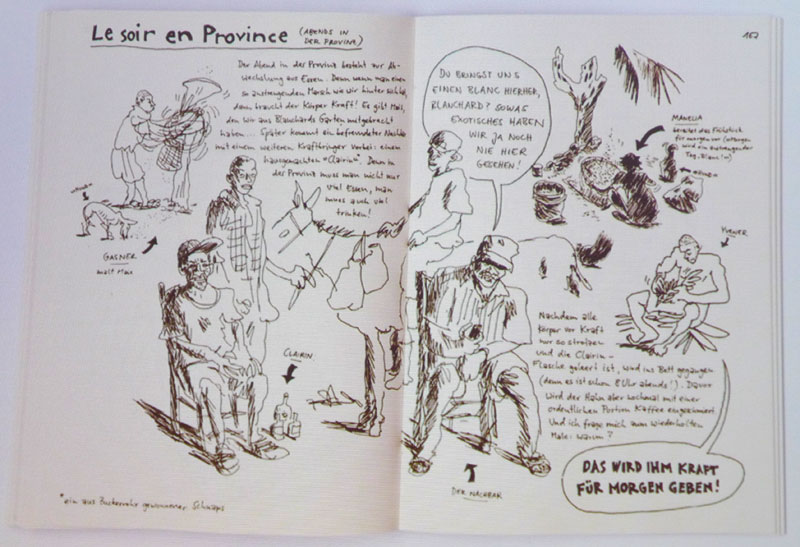 Le soir en Province (ABENDS IN
DER PROVINZ)
Der Abend in der Provinz besteht zur Ab-
wechslung aus Essen. Denn wenn man einen
so anstrengenden Marsch wie wir hinter sich hat,
dann braucht der Körper Kraft! Es gibt Mais,
den wir aus Blanchards Garten mitgebracht
haben... Später kommt ein befreundeter Nachbar
mit einem weiteren Kraftbringer vorbei: einem
hausgemachten "Clairin"*. Denn in
der Provinz muss man nicht nur
viel Essen, man
muss auch viel
trinken!
GASNER
malt Mais
CLAIRIN
*ein aus Zuckerrohr gewonnener Schnaps
157
DU BRINGST UNS
EINEN BLANC HIERHER,
BLANCHARD? SOWAS
EXOTISCHES HABEN
WIR JA NOCH
NIE HIER
GESEHEN!
MANELIA
bereitet das Frühstück
für morgen vor (morgen
wird ein anstrengender
Tag, Blanc!!!)
Nachdem alle
Körper vor Kraft
nur so strotzen
und die Clairin-
Flasche geleert ist, wird ins Bett gegangen
(denn es ist schon 8 Uhr abends!). Davor
wird der Hahn aber nochmal mit einer
ordentlichen Portion Kaffee eingerieben!
Und ich frage mich zum wiederholten
Male: warum?
DER NACHBAR
DAS WIRD IHM KRAFT
FÜR MORGEN GEBEN!